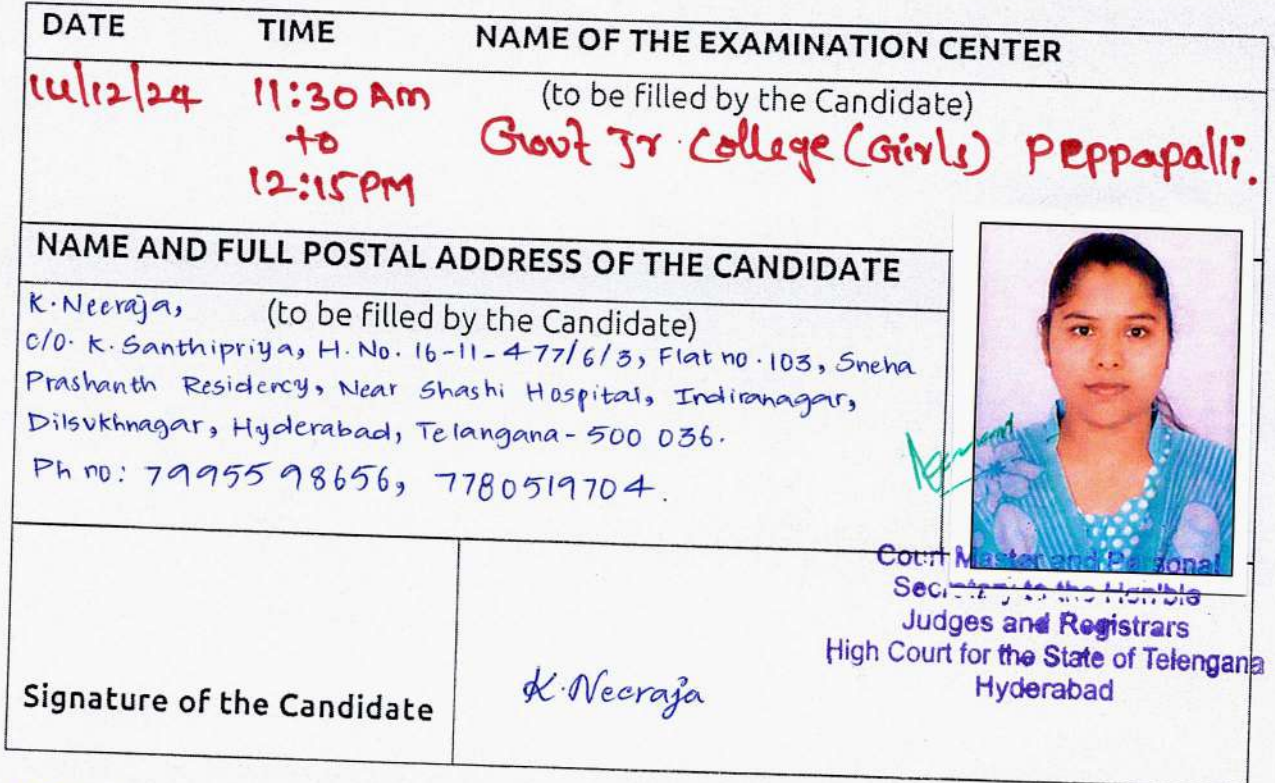 DATE TIME NAME OF THE EXAMINATION CENTER
14/12/24 11:30 Am (to be filled by the Candidate)
to Govt Jr. College (Girls) Peppapalli.
12:15 PM
NAME AND FULL POSTAL ADDRESS OF THE CANDIDATE
K. Neeraja, (to be filled by the Candidate)
c/o. K. Santhipriya, H. No. 16-11-477/6/3, Flat no. 103, Sneha
Prashanth Residency, Near Shashi Hospital, Indiranagar,
Dilsukhnagar, Hyderabad, Telangana - 500 036.
Ph no: 7995598656, 7780519704.
Court Master and Personal
Secretary to the Hon'ble
Judges and Registrars
High Court for the State of Telengana
Hyderabad
Signature of the Candidate K. Neeraja